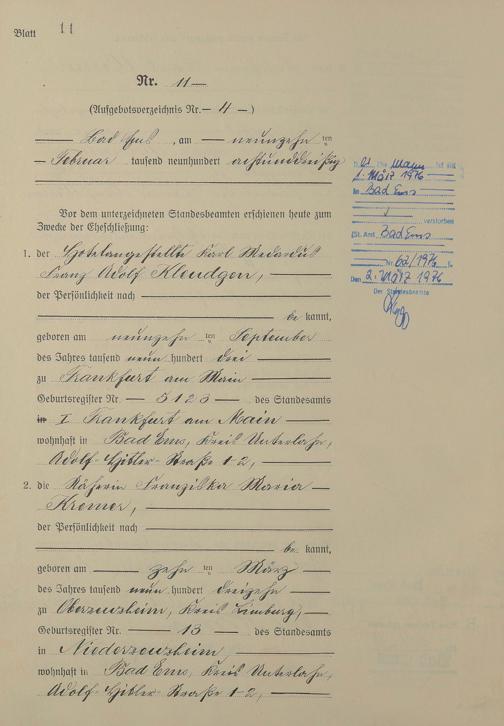 Blatt 11
Nr. 11
(Aufgebotsverzeichnis Nr. 4)
Bad Ems, am neunzehnten
Februar tausend neunhundert achtunddreißig
Vor dem unterzeichneten Standesbeamten erschienen heute zum
Zwecke der Eheschließung:
1. der Hotelangestellte Karl Medardus
Franz Adolf Kleudgen,
der Persönlichkeit nach
be kannt,
geboren am neunzehn ten September
des Jahres tausend neun hundert drei
zu Frankfurt am Main
Geburtsregister Nr. 5123 des Standesamts
in I Frankfurt am Main
wohnhaft in Bad Ems, Kreis Unterlahn,
Adolf-Hitler-Straße 1-2,
2. die Näherin Franziska Maria
Kremer,
der Persönlichkeit nach
be kannt,
geboren am zehn ten März
des Jahres tausend neun hundert dreizehn
zu Oberzeuzheim, Kreis Limburg,
Geburtsregister Nr. 13 des Standesamts
in Niederzeuzheim,
wohnhaft in Bad Ems, Kreis Unterlahn,
Adolf-Hitler-Straße 1-2,
Mann ist am
1. März 1976
in Bad Ems
verstorben
(St. Amt Bad Ems
Nr. 62/1976
Den 2. März 1976
Der Standesbeamte